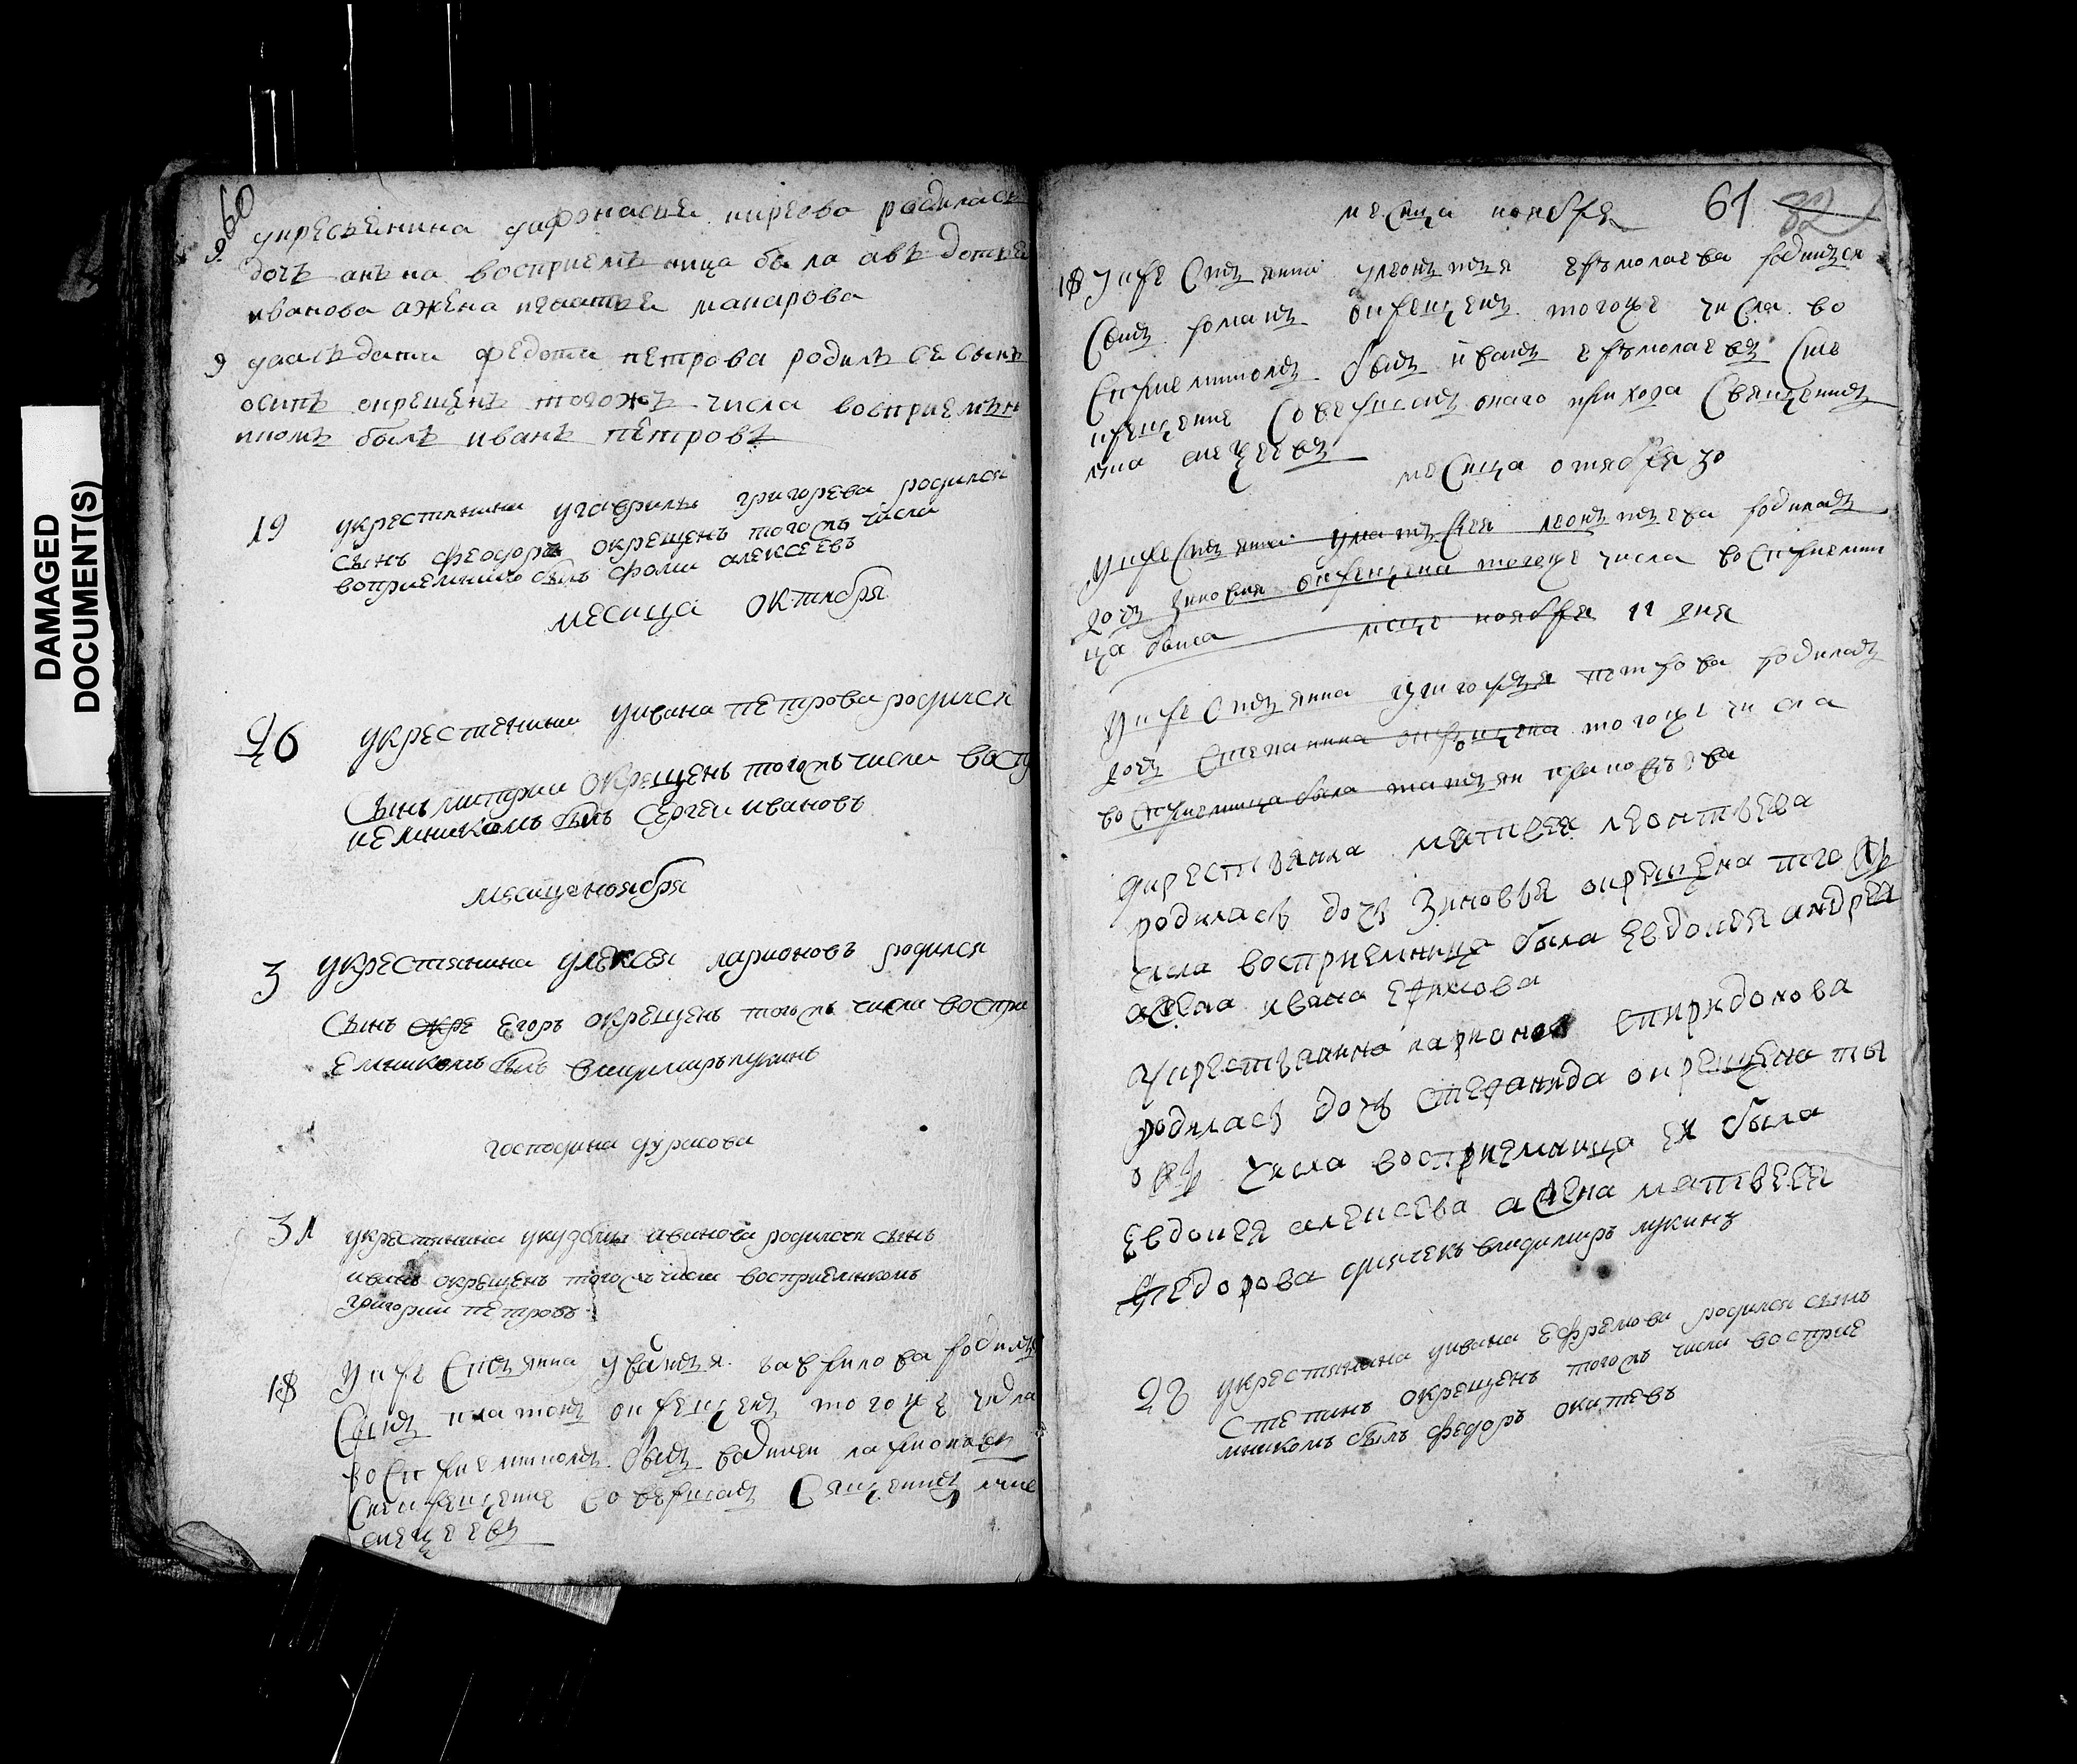 DAMAGED
DOCUMENT(S)
60
9 укресьянина уафонасия родилась
дочь анна восприемъ ница была авъ дотья
иванова ажена макарова
9 федота петрова родилъ се сынъ
осипъ окрещенъ тогожъ числа восприемъ
никомъ былъ иванъ петровъ
19 укрестьянина угаврилы григорева родился
сынъ феодоръ окрещенъ тогожъ числа
воприемником былъ фома алексеевъ
месяца октября
26 укрестьянина уивана петрова родился
сынъ окрещенъ тогожъ числа воспр
иемникомъ былъ сергеи ивановъ
месяца ноября
3 укрестьянина улексея ларионовъ родился
сынъ окре егоръ окрещенъ тогожъ числа воспри
емникомъ былъ владимиръ лукинъ
господина дурасова
31 укрестьянина укузмы иванова родился сынъ
иванъ окрещенъ тогожъ числа восприемникомъ
григории петровъ
18 укрестьянина гаврилова родился
сынъ платонъ окрещенъ тогоже числа
восприемникомъ былъ ларионовъ
крещение совершалъ священникъ
алецеевъ
месяца ноября 61 82
18 укрестьянина улеонтья ермолаева родился
сынъ романъ окрещенъ тогоже числа во
сприемникомъ былъ иванъ ермолаевъ сие
крещение совершалъ онаго прихода священникъ
алецеевъ
месяца октября 30
укрестьянина уматвея леонтьева родилась
дочь зиновия окрещена тогоже числа восприемни
ца была
месяце ноября 11 дня
укрестьянина петрова родилась
дочь степанида окрещена тогоже числа
восприемница была татьяна
укрестьянина матвея леонтьева
родилась дочь зиновья окрещена тогожъ
числа восприемница была евдокия андрея
ажена ивана ефимова
укрестьянина лариона спиридонова
родилась дочь стефанида окрещена ты
ожъ числа восприемница ея была
евдокея алексева ажена матвея
федорова владимиръ лукинъ
28 укрестьянина уивана ефремова родился сынъ
степанъ окрещенъ тогожъ числа восприе
мникомъ былъ федоръ